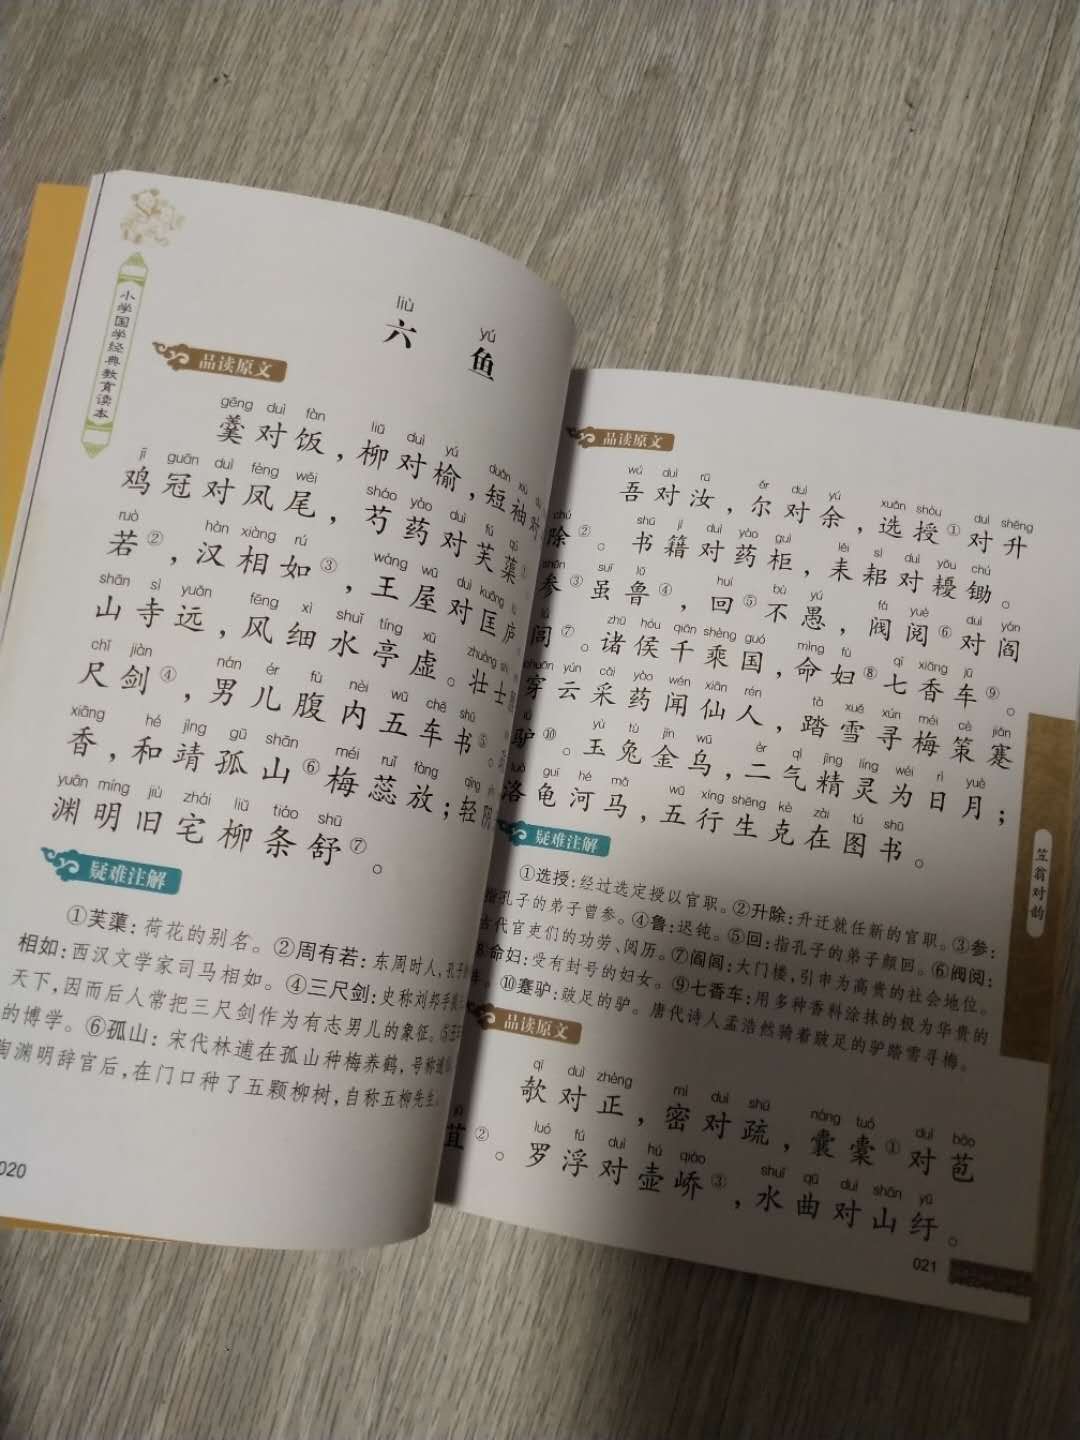 小学国学经典教育读本
liù yú
六 鱼
品读原文
gēng duì fàn liǔ duì yú duǎn xiù duì
羹对饭，柳对榆，短袖对
jī guān duì fèng wěi sháo yào duì fú qú
鸡冠对凤尾，芍药对芙蕖①
ruò hàn xiàng rú wáng wū duì kuāng lú
若②，汉相如③，王屋对匡庐
shān sì yuǎn fēng xì shuǐ tíng xū zhuàng shì
山寺远，风细水亭虚。壮士
chǐ jiàn nán ér fù nèi wǔ chē shū
尺剑④，男儿腹内五车书⑤。
xiāng hé jìng gū shān méi ruǐ fàng qīng yīn
香，和靖孤山⑥梅蕊放；轻阴
yuān míng jiù zhái liǔ tiáo shū
渊明旧宅柳条舒⑦。
疑难注解
①芙蕖：荷花的别名。②周有若：东周时人，孔子
相如：西汉文学家司马相如。④三尺剑：史称刘邦手提三
天下，因而后人常把三尺剑作为有志男儿的象征。⑤五车
的博学。⑥孤山：宋代林逋在孤山种梅养鹤，号称
陶渊明辞官后，在门口种了五颗柳树，自称五柳先生。
020
品读原文
wú duì rǔ ěr duì yú xuǎn shòu duì shēng
吾对汝，尔对余，选授①对升
chú shū jí duì yào guì lěi sì duì yōu chú
除②。书籍对药柜，耒耜对耰锄。
shēn suī lǔ huí bù yú fá yuè duì yán
参③虽鲁④，回⑤不愚，阀阅⑥对阎
lǘ zhū hóu qiān shèng guó mìng fù qī xiāng jū
闾⑦。诸侯千乘国，命妇⑧七香车⑨。
chuān yún cǎi yào wén xiān rén tà xuě xún méi cè jiǎn
穿云采药闻仙人，踏雪寻梅策蹇
lǘ yù tù jīn wū èr qì jīng líng wéi rì yuè
驴⑩。玉兔金乌，二气精灵为日月；
luò guī hé mǎ wǔ xíng shēng kè zài tú shū
洛龟河马，五行生克在图书。
疑难注解
①选授：经过选定授以官职。②升除：升迁就任新的官职。③参：
指孔子的弟子曾参。④鲁：迟钝。⑤回：指孔子的弟子颜回。⑥阀阅：
古代官吏们的功劳、阅历。⑦阎闾：大门楼，引申为高贵的社会地位。
⑧命妇：受有封号的妇女。⑨七香车：用多种香料涂抹的极为华贵的
车。⑩蹇驴：跛足的驴。唐代诗人孟浩然骑着跛足的驴踏雪寻梅。
品读原文
qī duì zhèng mì duì shū náng tuó duì bāo
欹对正，密对疏，囊橐①对苞
jū luó fú duì hú qiáo shuǐ qū duì shān yū
苴②。罗浮对壶峤③，水曲对山纡。
021
笠翁对韵